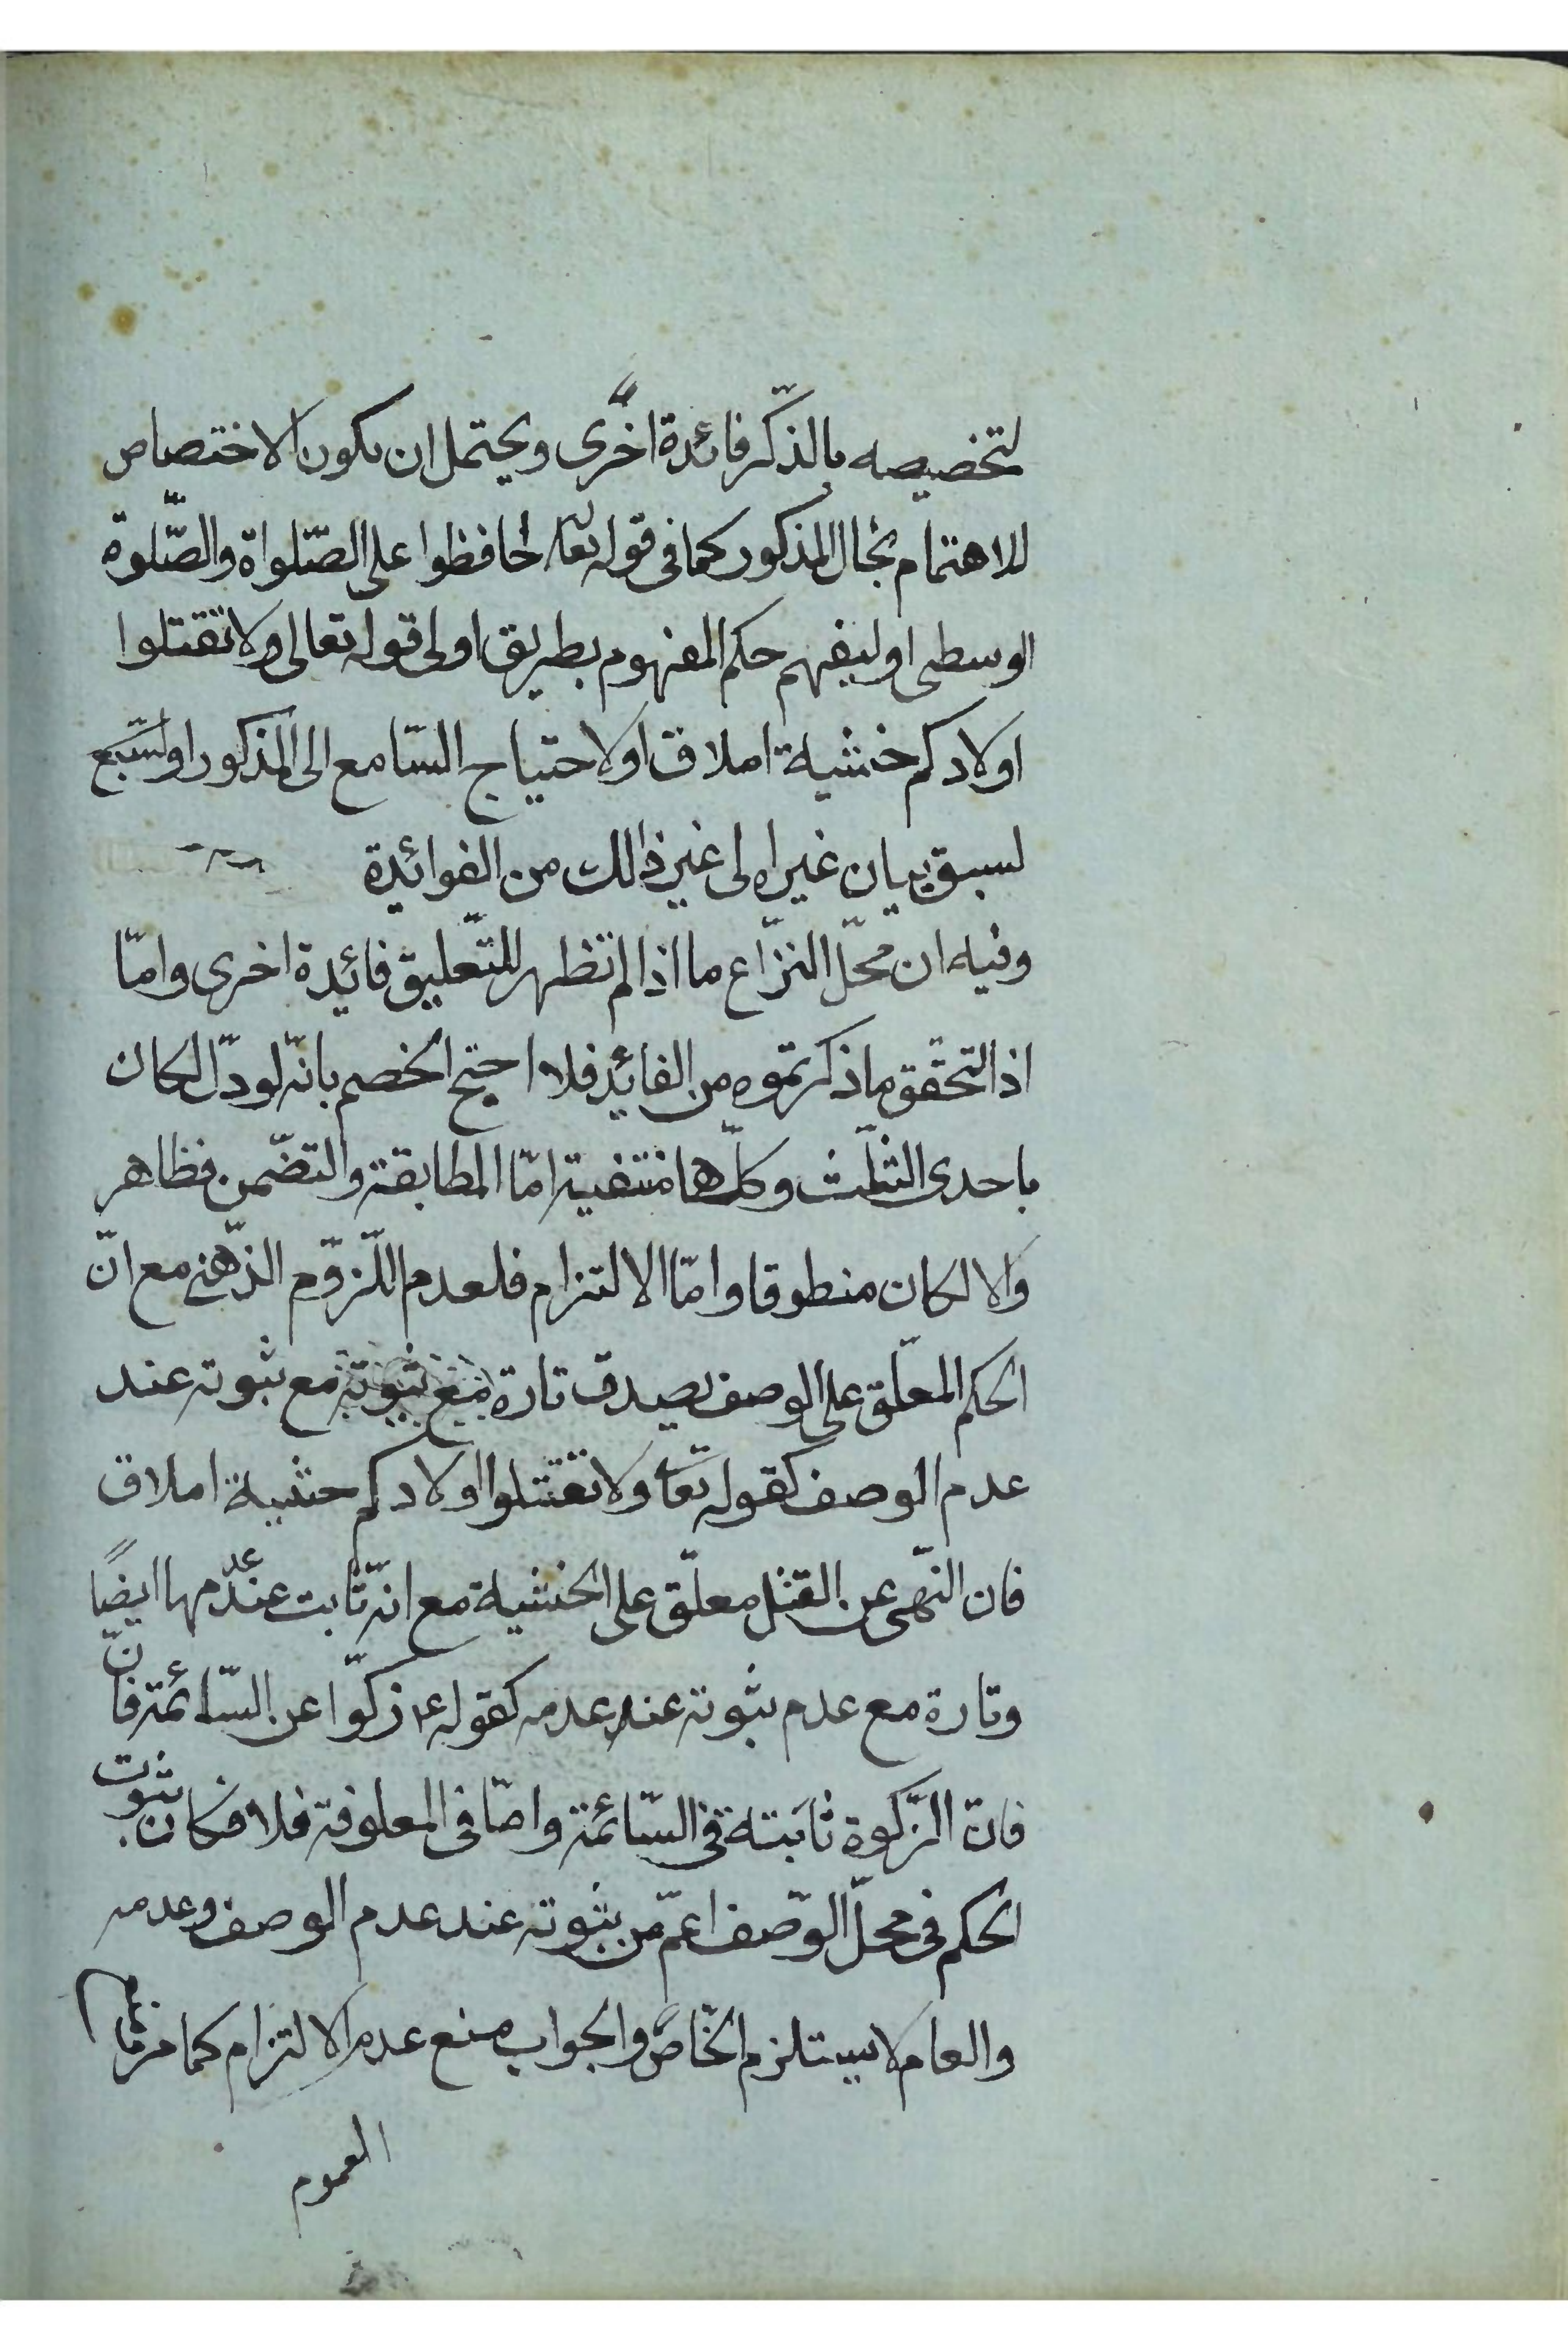 لتخصيصه بالذّكر فائدة اخرى ويحتمل ان يكون الاختصاص
للاهتمام بحال المذكور كما فى قوله تعا حافظوا على الصّلواة والصّلوة
الوسطى او ليفهم حكم المفهوم بطريق اولى قوله تعالى ولا تقتلوا
اولادكم خشية املاق او لاحتياج السّامع الى المذكور او
لسبق بيان غيراه الى غير ذالك من الفوائدة
وفيه ان محلّ النزّاع ما اذا لم تظهر للتّعليق فائدة اخرى وامّا
اذا التحقّق ما ذكرتموه من الفائد فلا احتج الخصم بانّه لو دلّ لكان
باحدى الثلّث وكلّها منتفية امّا المطابقة والتضّمن فظاهر
والا لكان منطوقا وامّا الالتزام فلعدم اللّزوم الذّهنى مع انّ
الحكم المعلّق على الوصف يصدق تارة مع ثبوته مع ثبوته عند
عدم الوصف كقوله تعا ولا تقتلوا اولادكم خشية املاق
فان النّهى عن القتل معلّق على الخشية مع انّه ثابت عند عدمها ايضًا
وتارة مع عدم ثبوته عند عدمه كقوله ع زكوّا عن السّائمة فانّ
فانّ الزّكوة ثابتة فى السّائمة وامّا فى المعلوفة فلا فكان ثبوت
الحكم فى محلّ الوّصف اعمّ من ثبوته عند عدم الوصف وعدمه
والعام لا يستلزم الخّاصّ والجواب منع عدم الالتزام كما مرّ
العموم